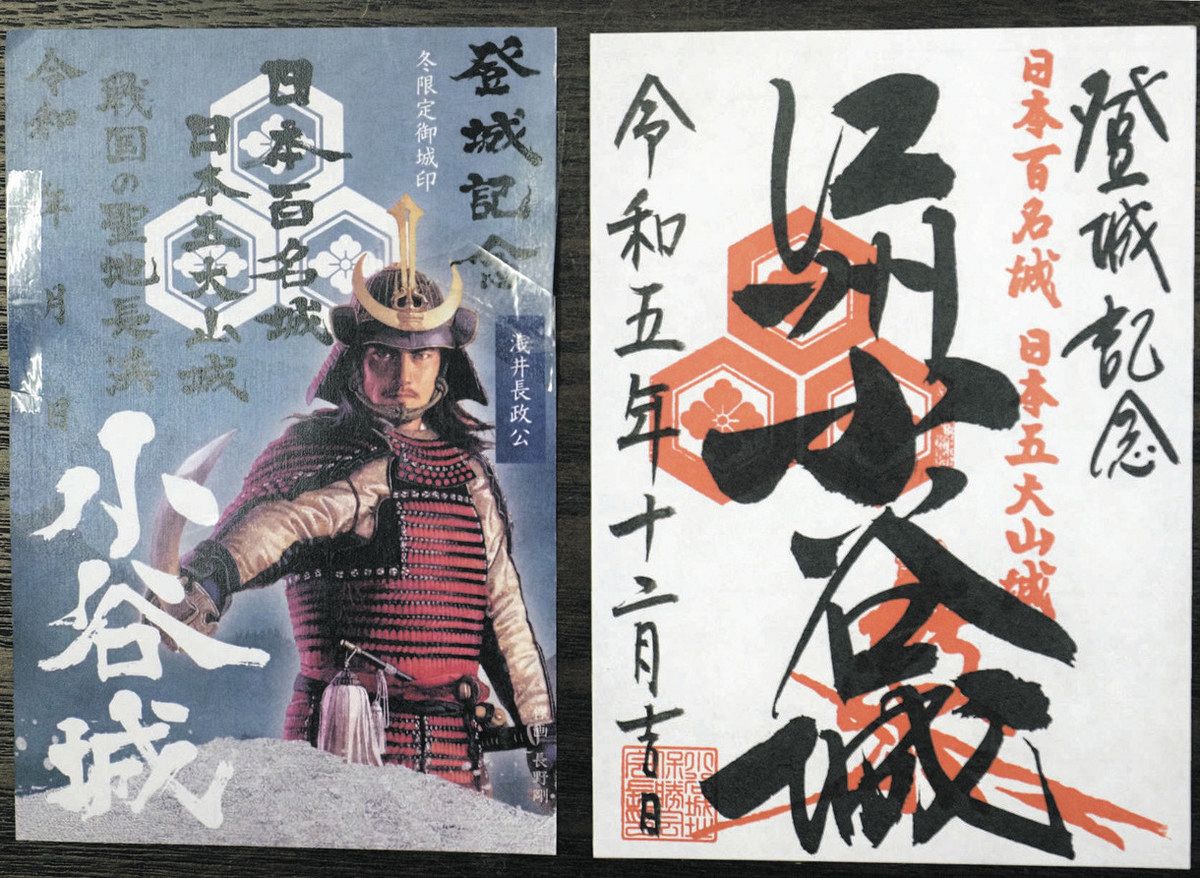 登城記念
冬限定御城印
日本百名城
日本五大山城
戦国の聖地長浜
令和 年 月 日
浅井長政公
小谷城
長野剛
登城記念
日本百名城 日本五大山城
江州小谷城
令和五年十二月吉日